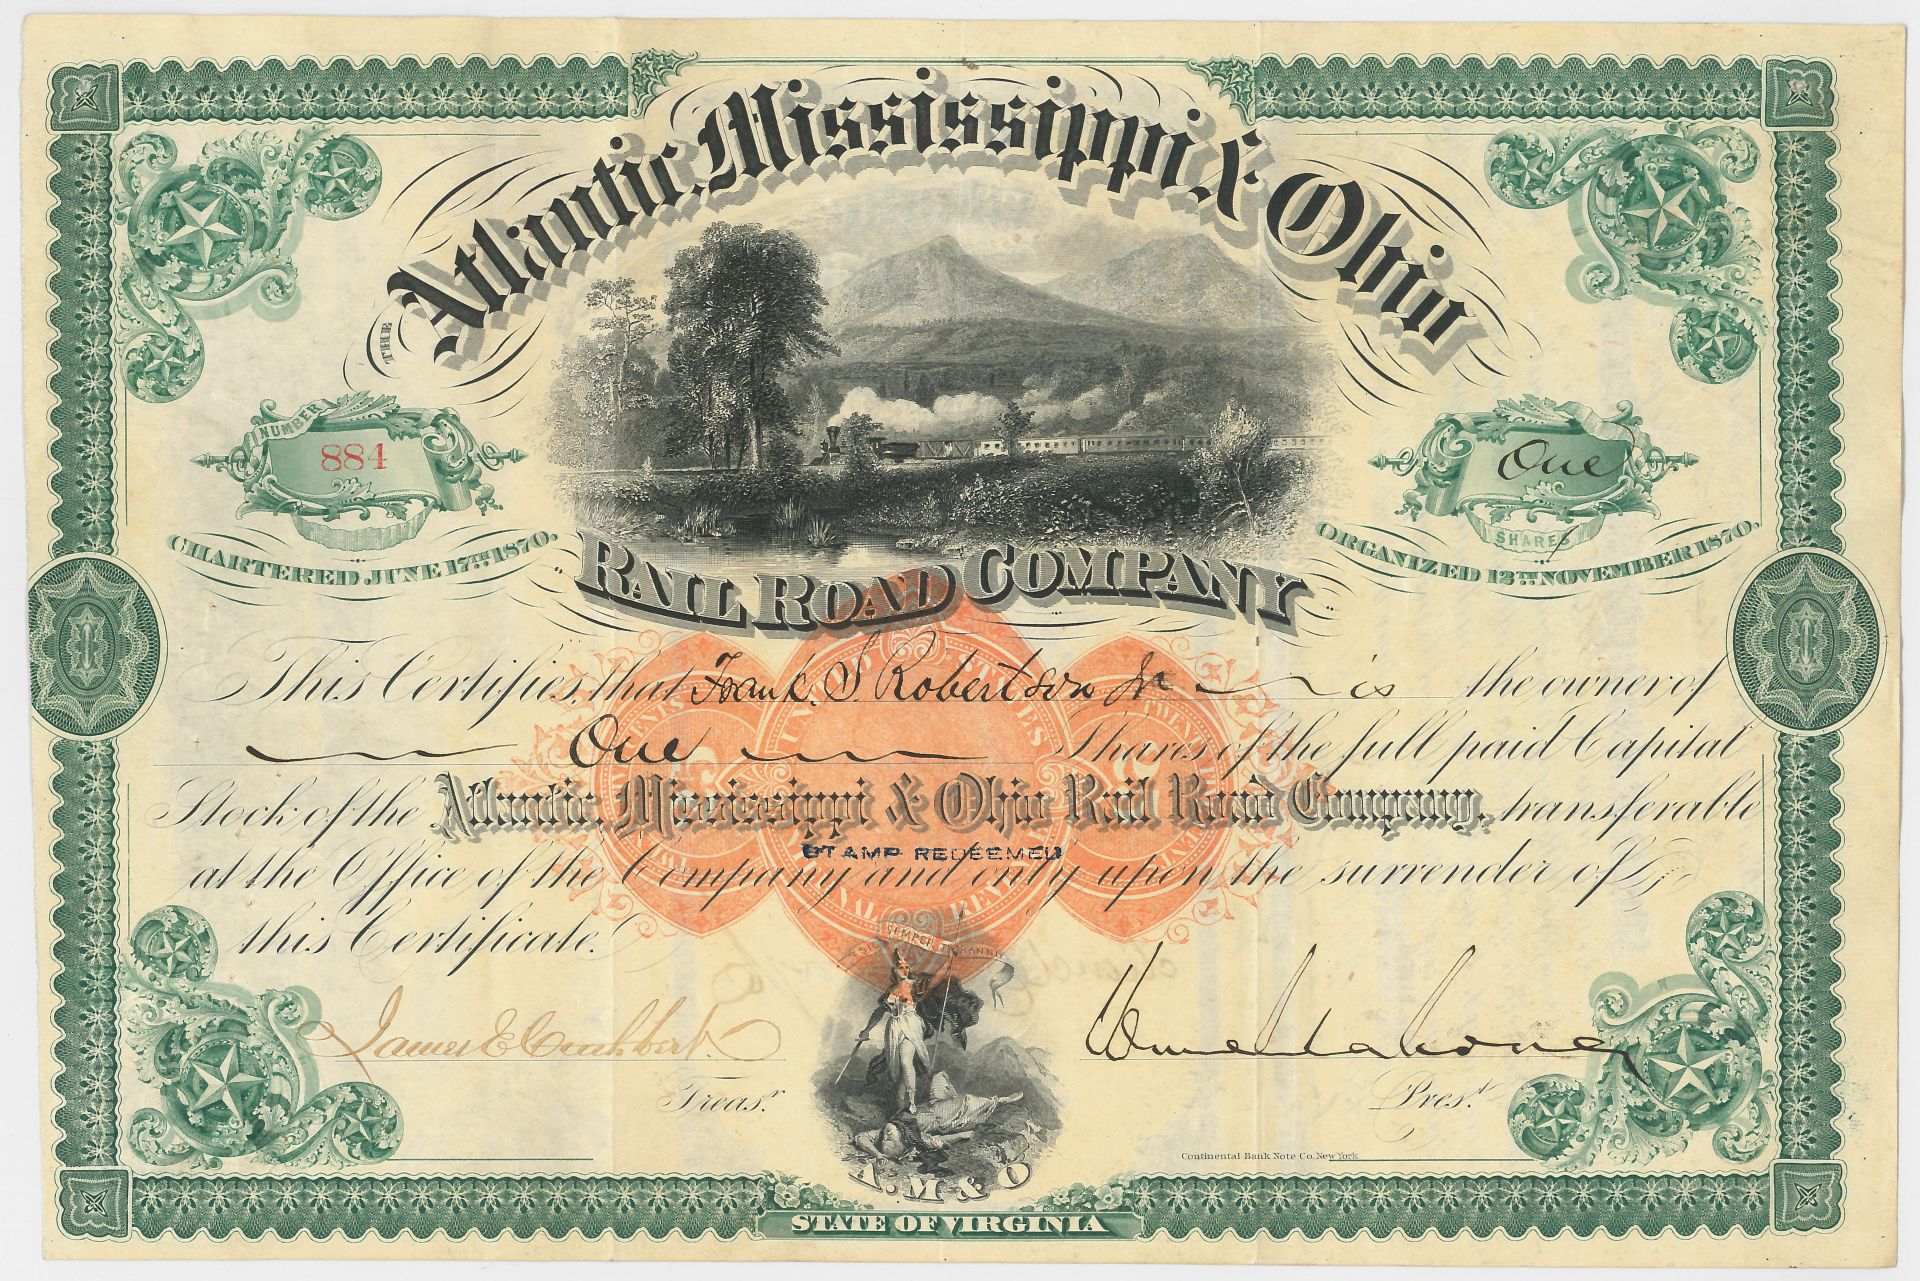 THE Atlantic, Mississippi & Ohio
RAIL ROAD COMPANY
NUMBER
884
CHARTERED JUNE 17TH 1870.
One
SHARES
ORGANIZED 12TH NOVEMBER 1870.
This Certifies, that Frank. S. Robertson Jr is the owner of
One Shares of the full paid Capital
Stock of the Atlantic, Mississippi & Ohio Rail Road Company, transferable
STAMP REDEEMED
at the Office of the Company and only upon the surrender of
this Certificate.
SIC SEMPER TYRANNIS
James E Cuthbert
Treasr.
William Mahone
Prest.
Continental Bank Note Co. New York
A. M & O
STATE OF VIRGINIA